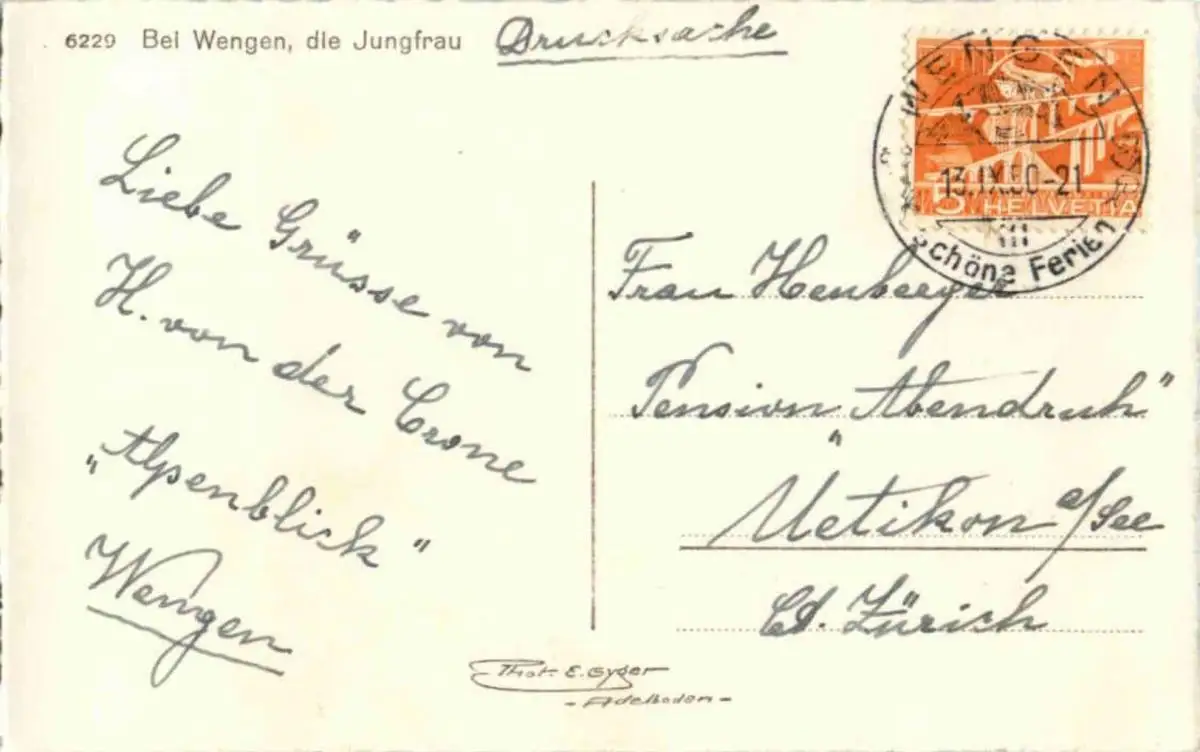 6229 Bei Wengen, die Jungfrau
Drucksache
WENGEN
13.IX.50-21
Schöne Ferien
5 HELVETIA
Liebe Grüsse von
H. von der Crone
„Alpenblick"
Wengen
Frau Henberger
Pension „Abendruh"
Uetikon a/See
Ct. Zürich
Phot. E. Gyger
- Adelboden -